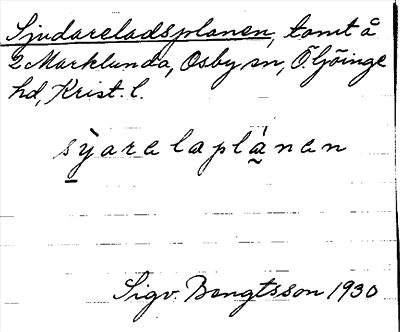 Sjudareladsplanen, tomt å
2 Marklunda, Osby sn, Ö. Göinge
hd, Krist. l.
s̲ỳarelaplá̰nen
Sigv. Bengtsson 1930